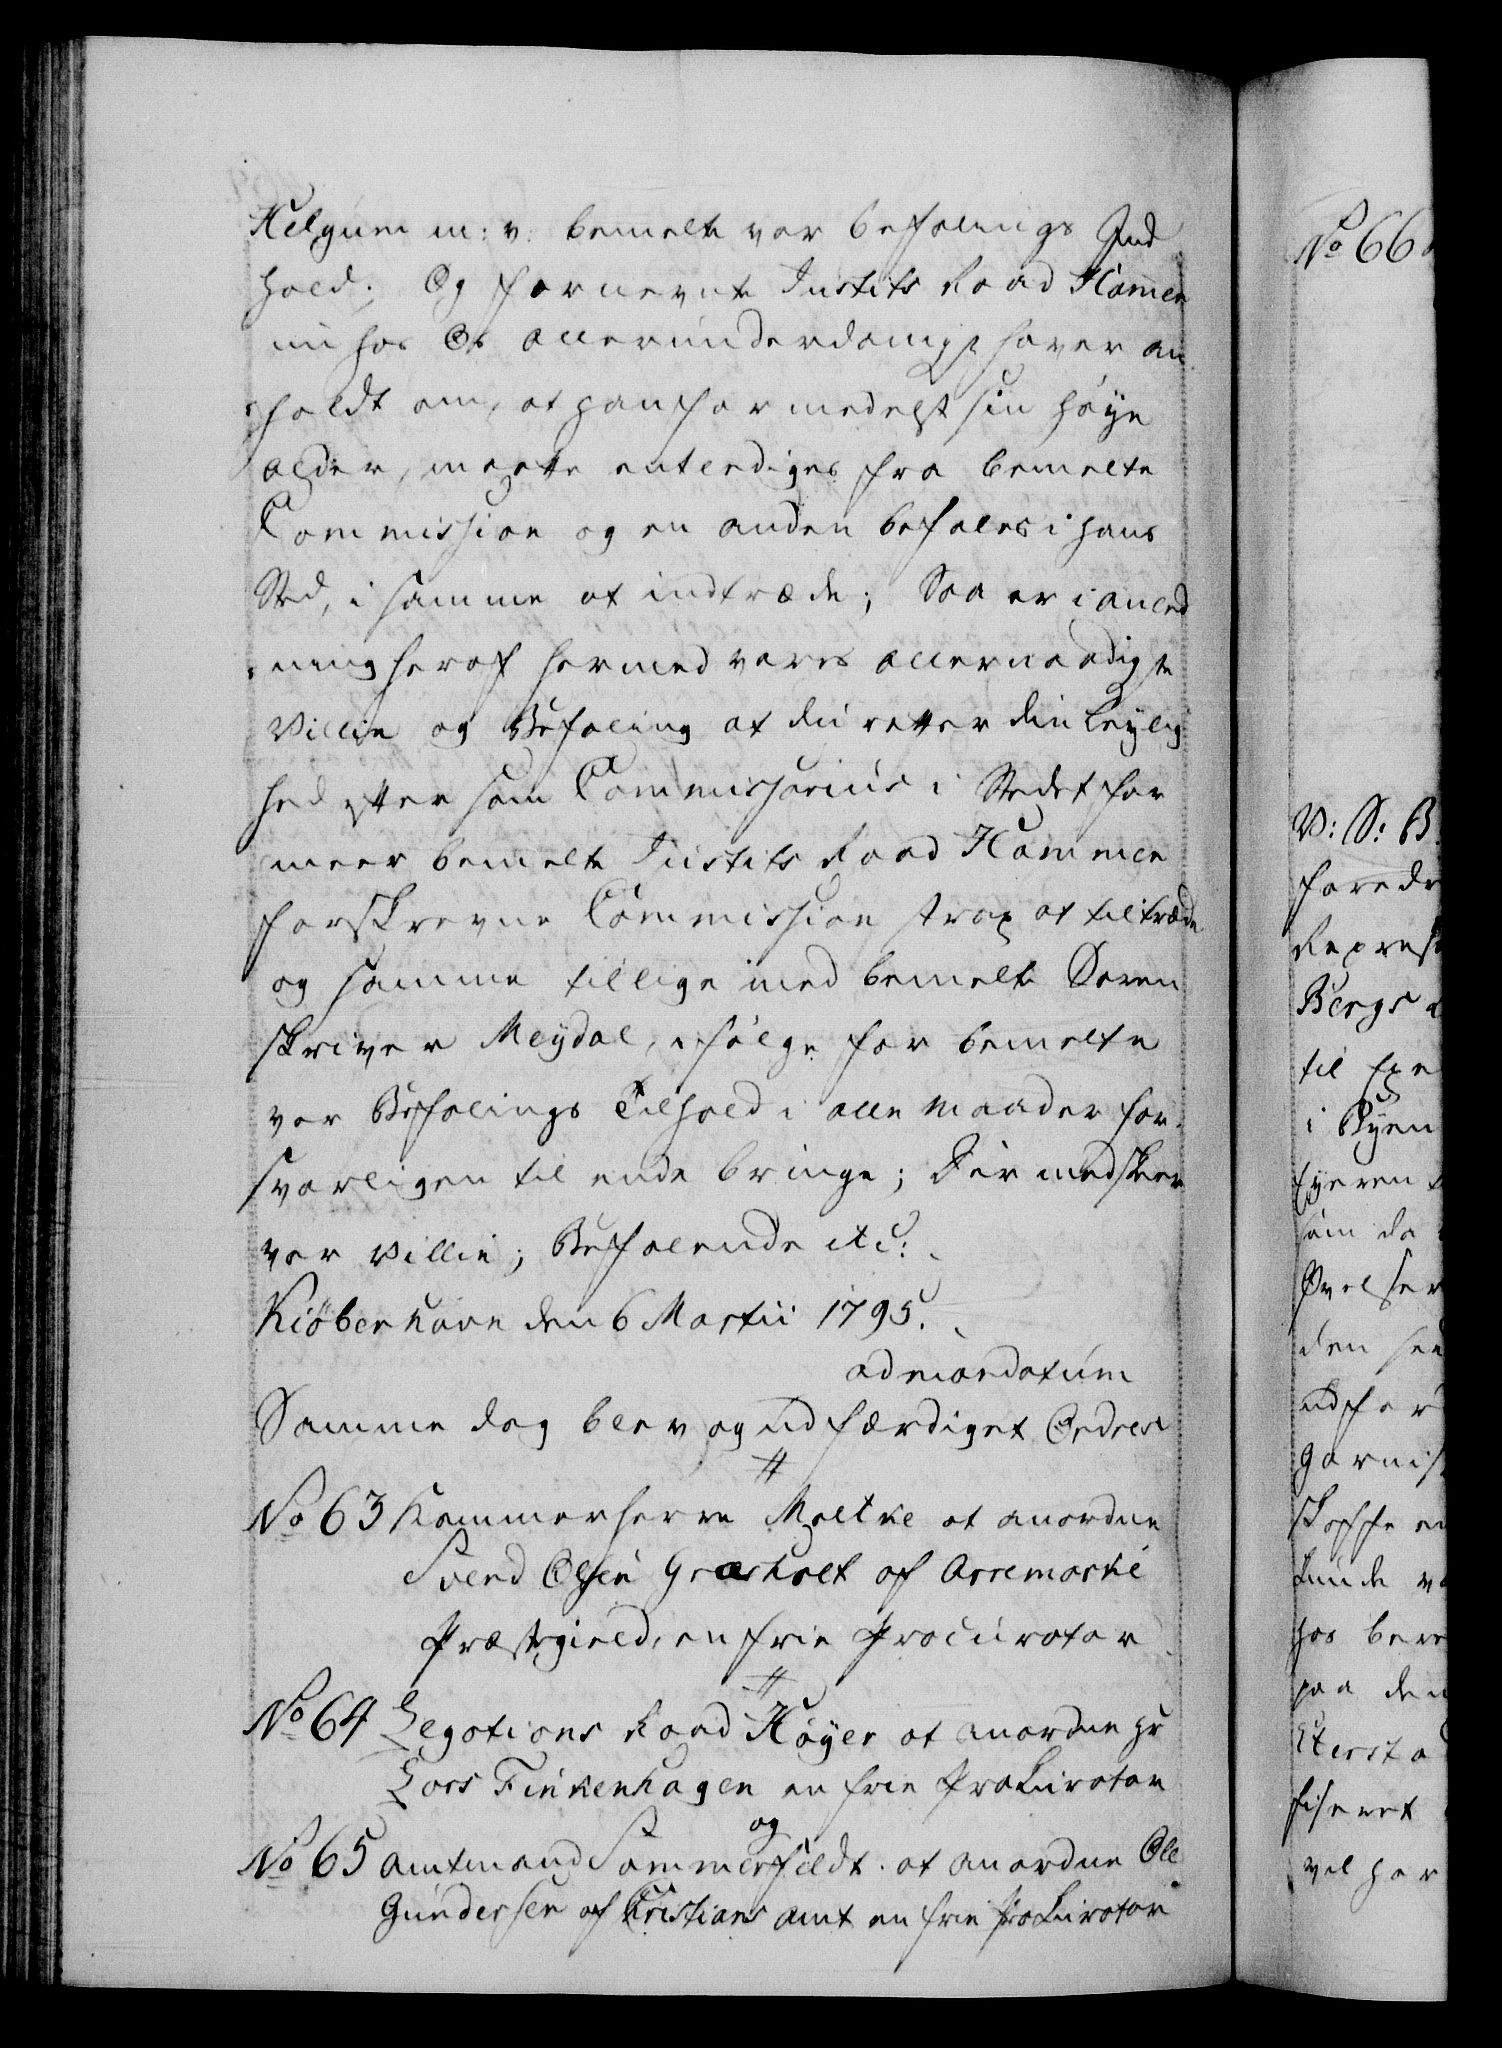 Helgum m: v: bemelte vor befalings Ind
hold; Og fornevnte Justits Raad Hammer
nu hos Os allerunderdanigst haver an
holdt om, at han formedelst sin høye
alder, maatte entlediges fra bemelte
Commission og en anden befales i hans
Sted, i samme at indtræde; Saa er i anled
ning heraf hermed vores allernaadigste
Villie og Befaling at du retter din Leylig
hed efter som Commissarius i Stedet for
meer bemelte Justits Raad Hammer
forskrevne Commission strax at tiltræde
og samme tillige med bemelte Soren
skriver Meydal, i følge for bemelte
vor Befalings Tilhold i alle maader for-
svarligen til ende bringe; Der med skeer
vor Villie; Befalende etc:
Kiøbenhavn den 6 Martii 1795.
ad mandatum
Samme dag blev og udfærdiget Ordres
No 63 Kammerherre Moltke at anordne
Svend Olsen Græsholt af Arremarke
Præstegield, en frie Procurator
No 64 Legations Raad Høyer at anordne hr
Lars Finkenhagen en frie Prokurator
og
No 65 Amtmand Sommerfeldt at anordne Ole
Gundersen af Christians amt en frie Prokurator
No 66
V: S: B.
foredr
Repres
Bergs
til Exe
i Byen
Eyeren
som da
Øvelser
den see
udfør
Garnis
skaffe en
kunde v
hos bem
paa den
fiseret
vel har